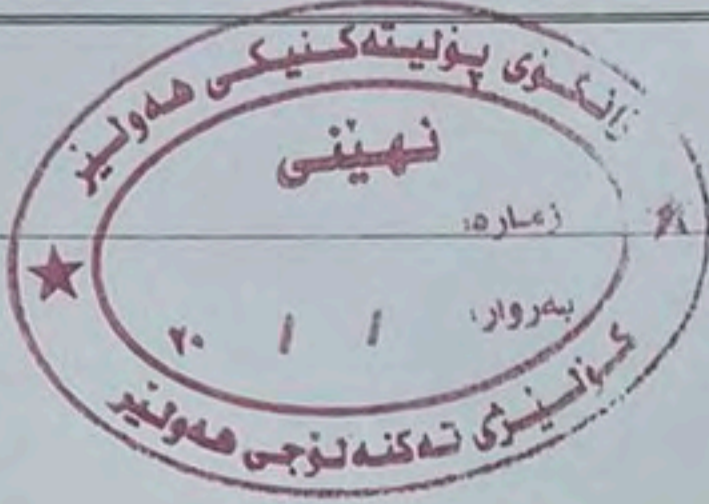 زانکۆی پۆلیتەکنیکی هەولێر
نهێنی
ژمارە:
بەروار: / / ٢٠
کۆلێژی تەکنەلۆجی هەولێر